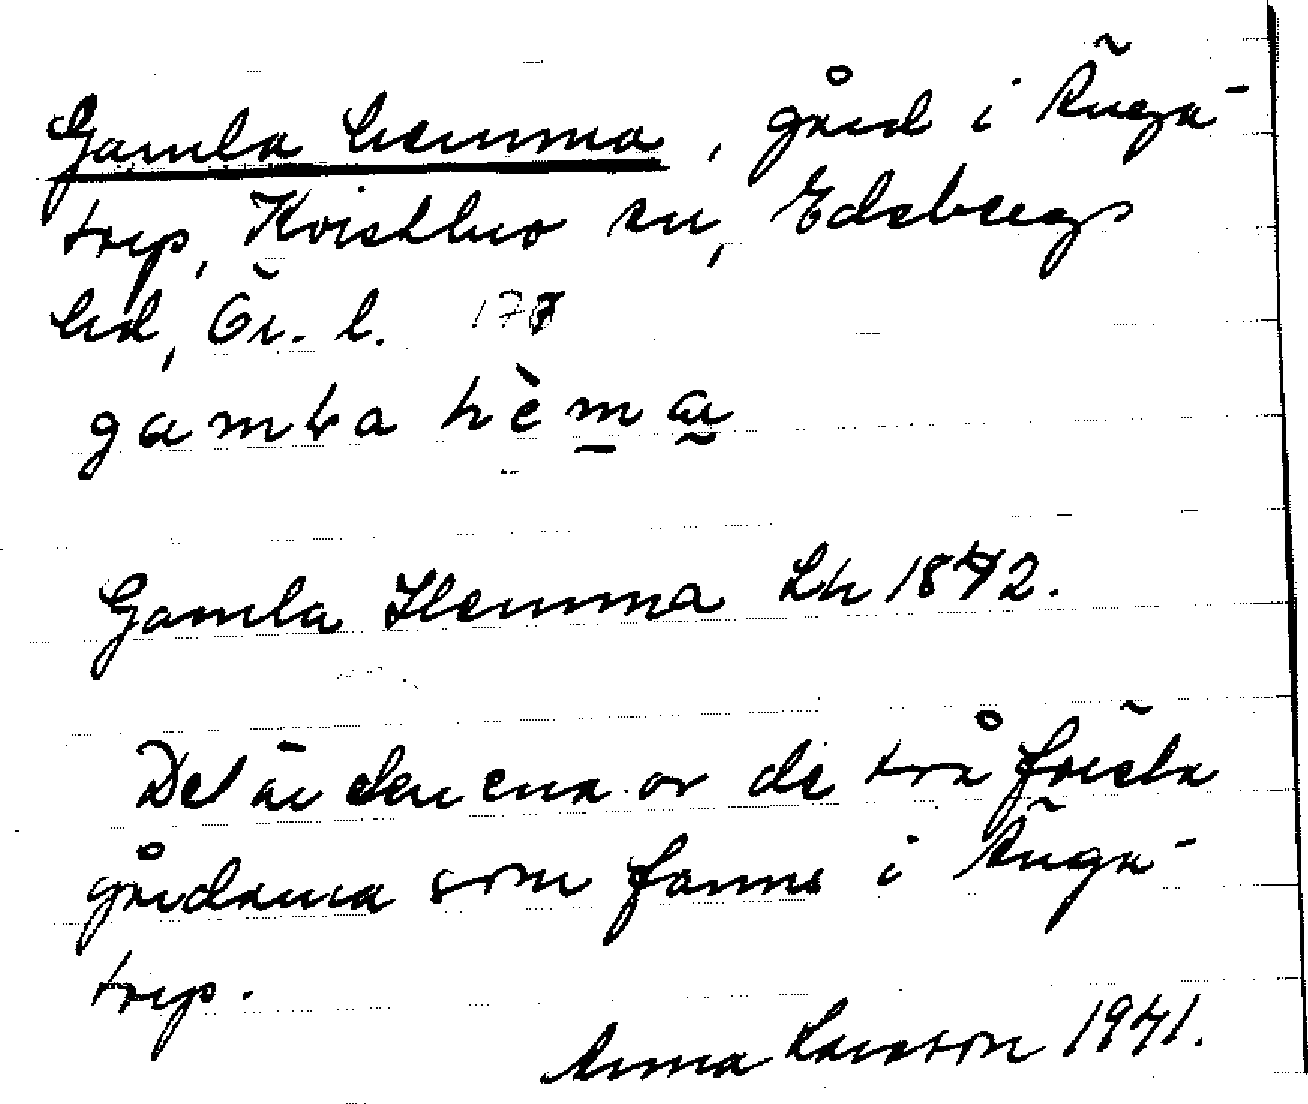 Gamla hemma, gård i Änga-
torp, Kvistbro sn, Edsbergs
hd, Ör. l. 177
gamla hèma
Gamla Hemma Lh 1842.
Det är den ena av de två första
gårdarna som fanns i Änga-
torp.
Anna Larsson 1941.